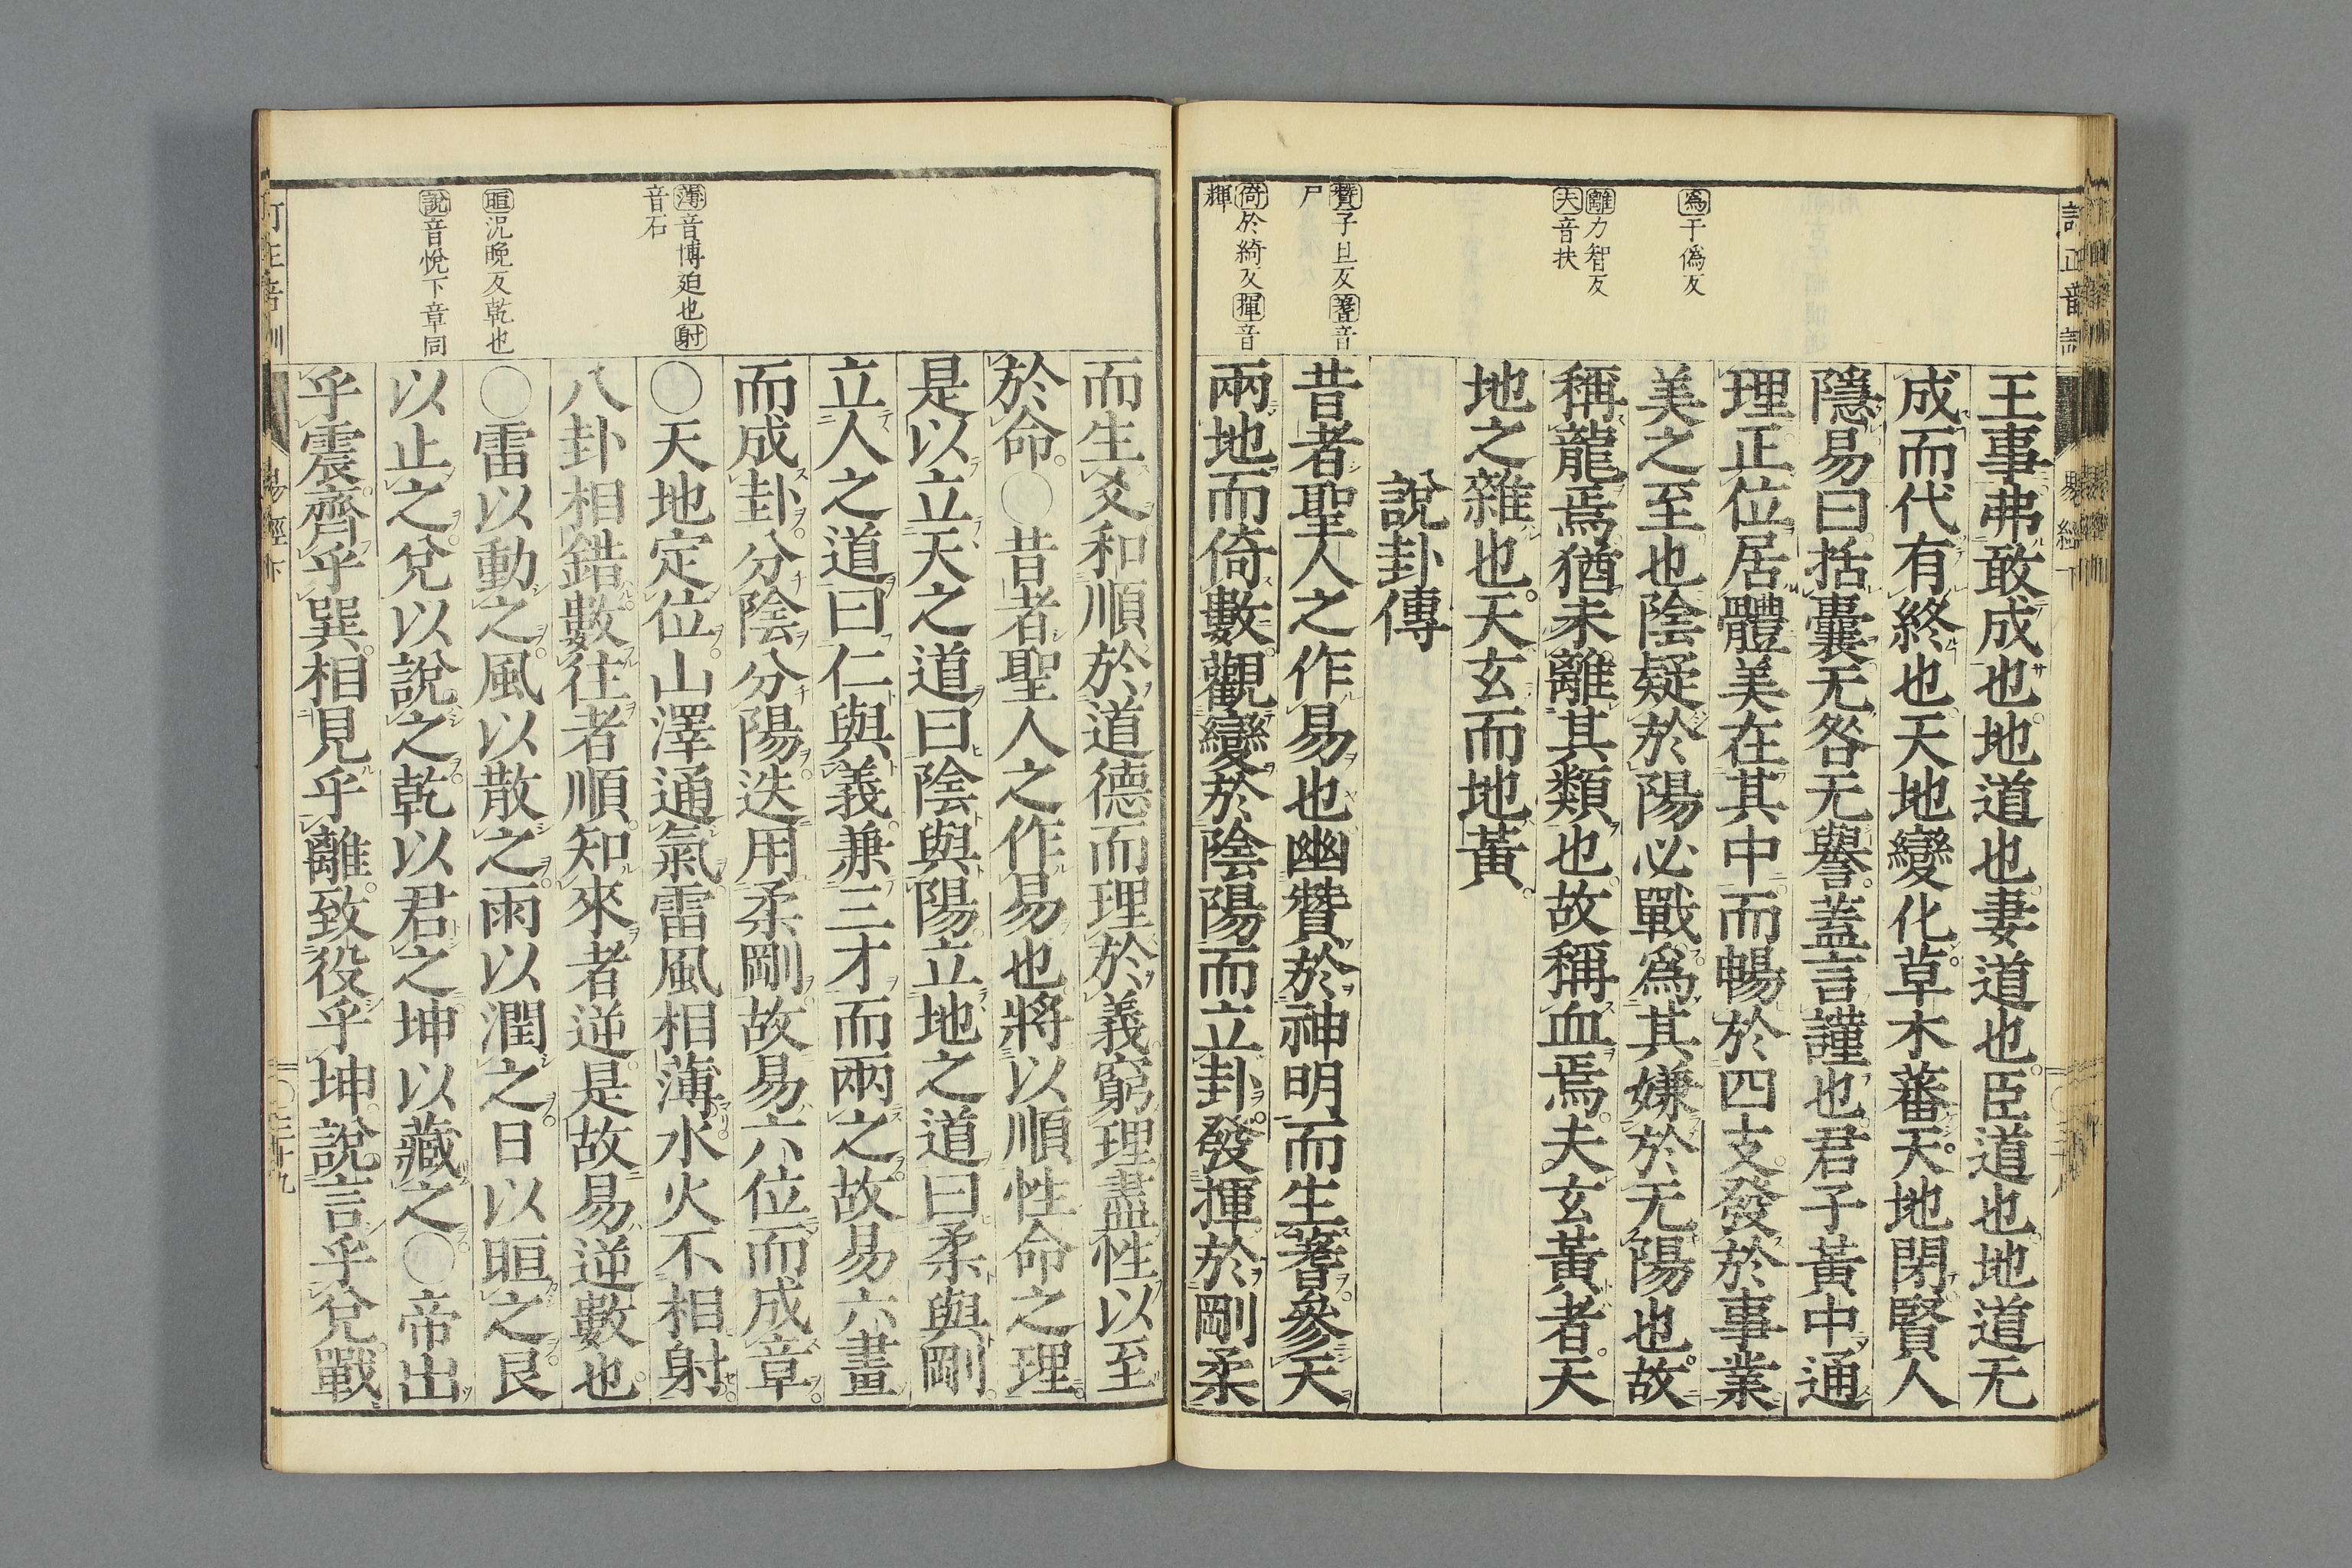 爲于僞反
離力智反
夫音扶
贊子旦反蓍音
尸
倚於綺反揮音
輝
王事弗敢成也地道也妻道也臣道也地道无
成而代有終也天地變化草木蕃天地閉賢人
隱易曰括囊无咎无譽蓋言謹也君子黃中通
理正位居體美在其中而暢於四支發於事業
美之至也陰疑於陽必戰爲其嫌於无陽也故
稱龍焉猶未離其類也故稱血焉夫玄黃者天
地之雜也天玄而地黃
說卦傳
昔者聖人之作易也幽贊於神明而生蓍參天
兩地而倚數觀變於陰陽而立卦發揮於剛柔
薄音博迫也射
音石
晅況晚反乾也
說音悅下章同
而生爻和順於道德而理於義窮理盡性以至
於命○昔者聖人之作易也將以順性命之理
是以立天之道曰陰與陽立地之道曰柔與剛
立人之道曰仁與義兼三才而兩之故易六畫
而成卦分陰分陽迭用柔剛故易六位而成章
○天地定位山澤通氣雷風相薄水火不相射
八卦相錯數往者順知來者逆是故易逆數也
○雷以動之風以散之雨以潤之日以晅之艮
以止之兌以說之乾以君之坤以藏之○帝出
乎震齊乎巽相見乎離致役乎坤說言乎兌戰